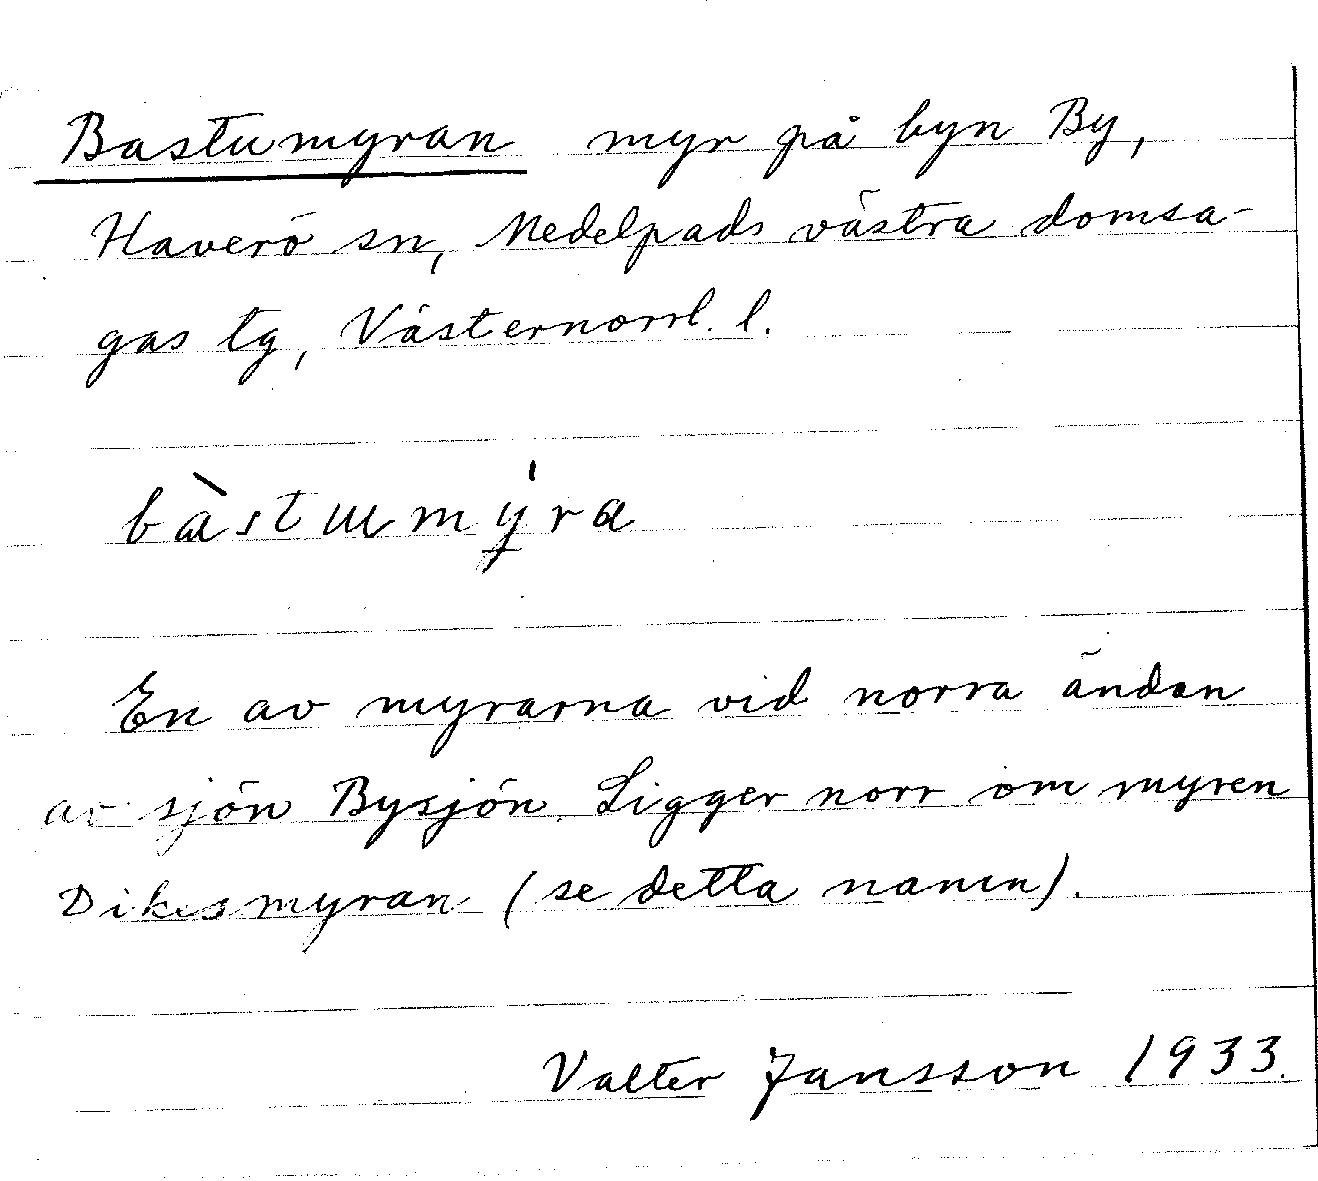 Bastumyran myr på byn By,
Haverö sn, Medelpads västra domsa-
gas tg, Västernorrl. l.
bàstumýra
En av myrarna vid norra ändan
av sjön Bysjön. Ligger norr om myren
Dikesmyran (se detta namn).
Valter Jansson 1933.